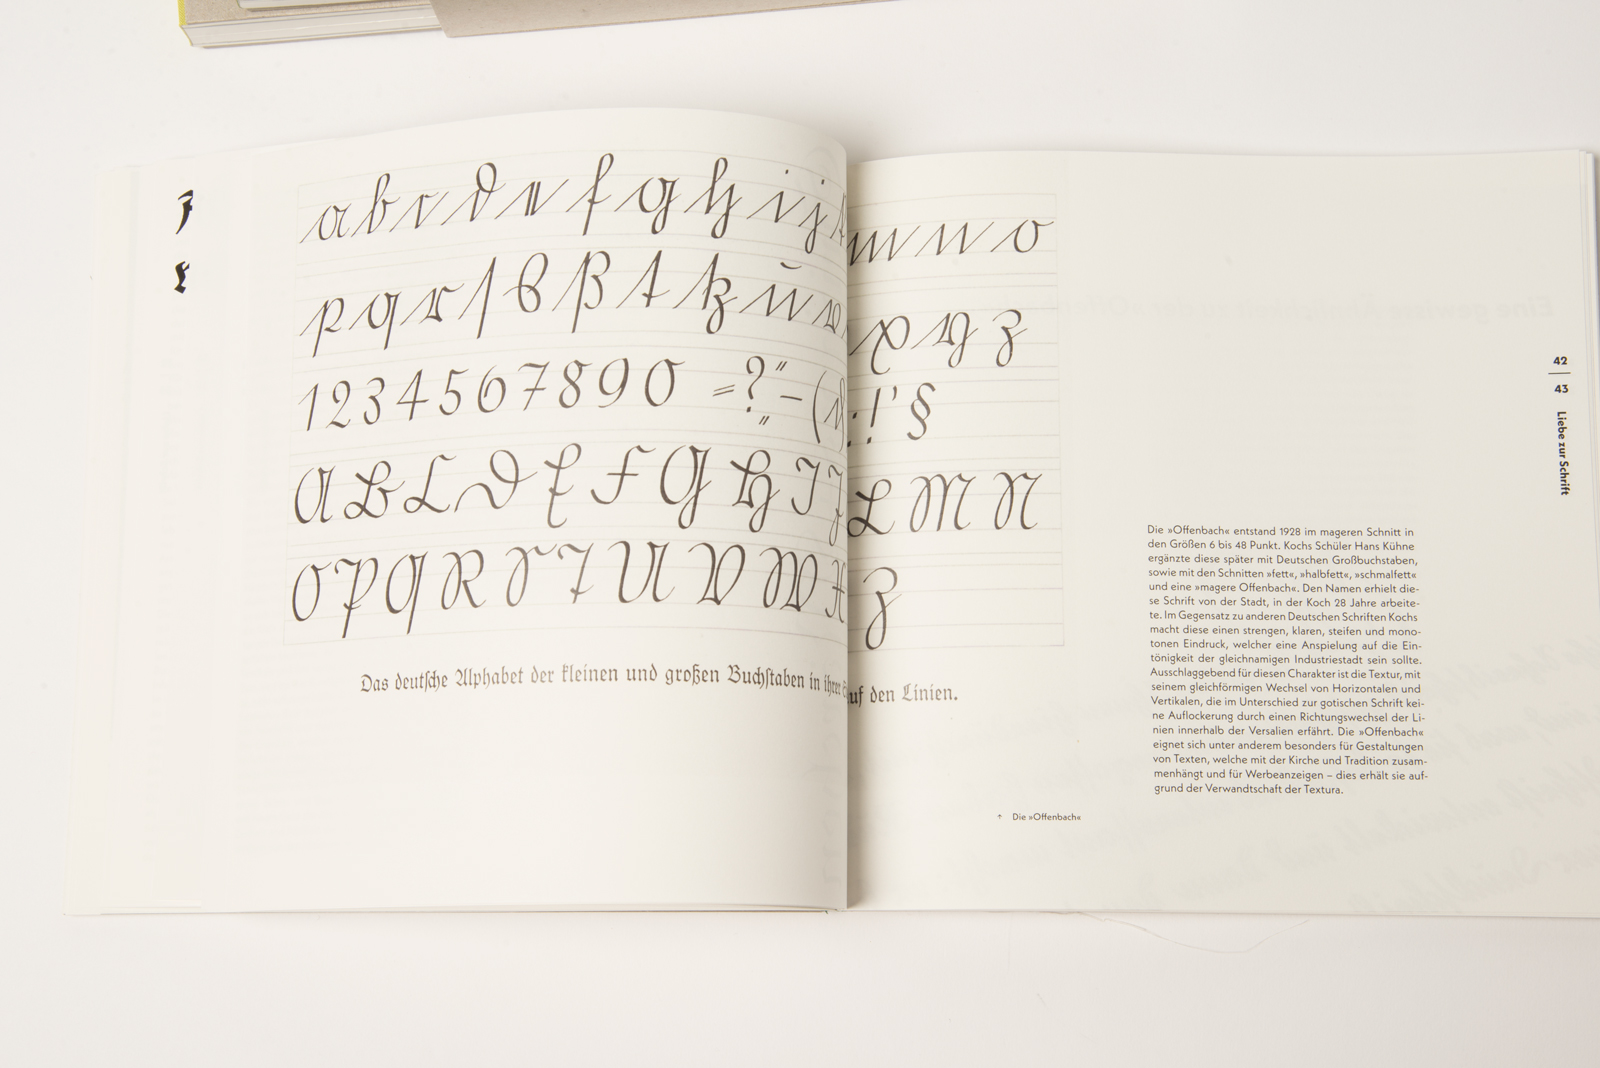 a b c d e f g h i j
m n o
p q r ſ s ß t tz u v
x y z
1 2 3 4 5 6 7 8 9 0 = ? „ “ – (
. ! ' §
A B C D E F G H I J
L M N
O P Q R S T U V W X
Z
Das deutſche Alphabet der kleinen und großen Buchſtaben in ihrer
auf den Linien.
42
43
Liebe zur Schrift
Die »Offenbach« entstand 1928 im mageren Schnitt in
den Größen 6 bis 48 Punkt. Kochs Schüler Hans Kühne
ergänzte diese später mit Deutschen Großbuchstaben,
sowie mit den Schnitten »fett«, »halbfett«, »schmalfett«
und eine »magere Offenbach«. Den Namen erhielt die-
se Schrift von der Stadt, in der Koch 28 Jahre arbeite-
te. Im Gegensatz zu anderen Deutschen Schriften Kochs
macht diese einen strengen, klaren, steifen und mono-
tonen Eindruck, welcher eine Anspielung auf die Ein-
tönigkeit der gleichnamigen Industriestadt sein sollte.
Ausschlaggebend für diesen Charakter ist die Textur, mit
seinem gleichförmigen Wechsel von Horizontalen und
Vertikalen, die im Unterschied zur gotischen Schrift kei-
ne Auflockerung durch einen Richtungswechsel der Li-
nien innerhalb der Versalien erfährt. Die »Offenbach«
eignet sich unter anderem besonders für Gestaltungen
von Texten, welche mit der Kirche und Tradition zusam-
menhängt und für Werbeanzeigen – dies erhält sie auf-
grund der Verwandtschaft der Textura.
↑ Die »Offenbach«